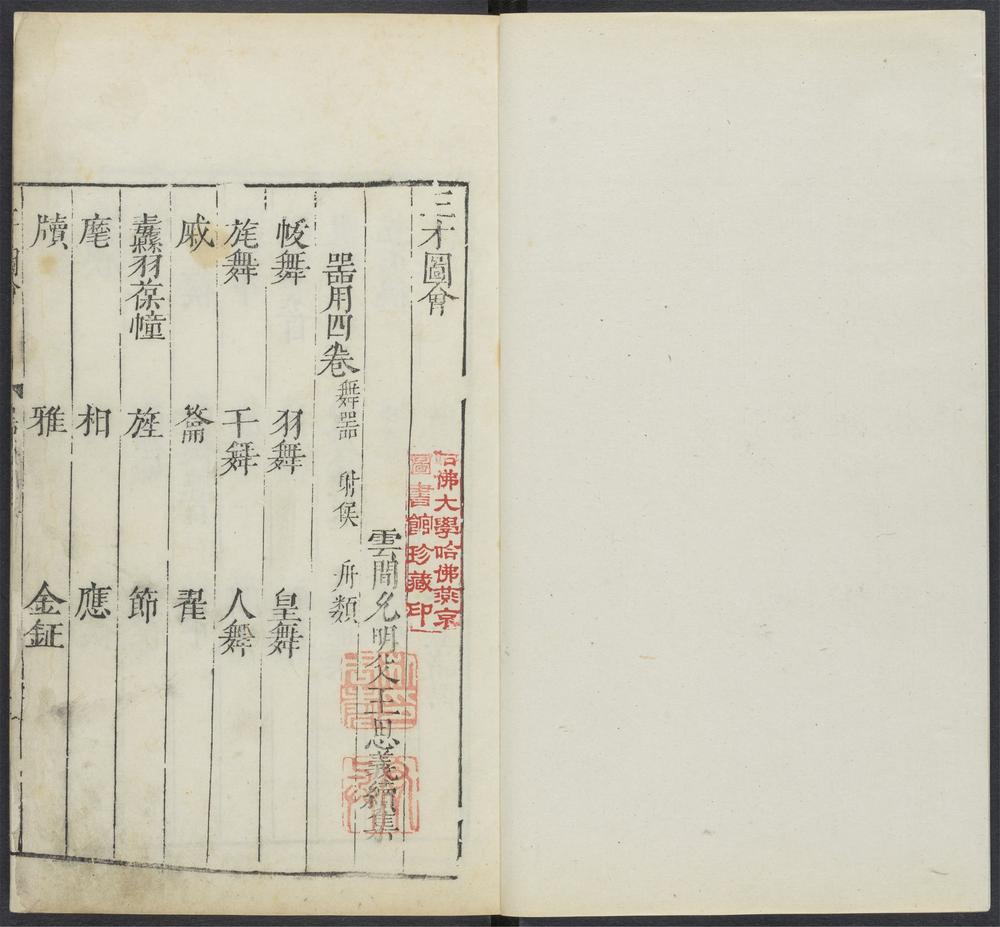 三才圖會
雲間允明父王思義續集
器用四卷 舞器 射侯 舟類
帗舞 羽舞 皇舞
旄舞 干舞 人舞
戚 籥 翟
纛羽葆幢 旌 節
麾 相 應
牘 雅 金鉦
哈佛大學哈佛燕京
圖書館珍藏印